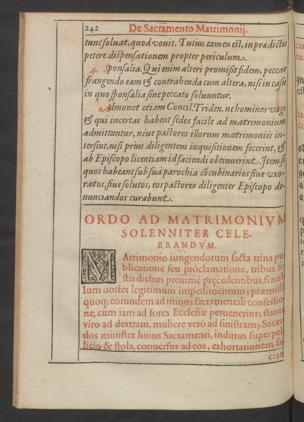 242 De Sacramento Matrimonij.
tunc soluat, quod vouit. Tutius tamen est, in prædictis
petere dispensationem propter periculum.
Sponsalia. Qui enim alteri promisit fidem, peccat
frangendo eam & contrahendo cum altera, nisi in casu
in quo sponsalia sine peccato soluuntur.
Admonet etiam Concil. Triden. ne homines vagi
& qui incertas habent sedes facile ad matrimonium
admittantur, néue pastores illorum matrimoniis in-
tersint, nisi prius diligentem inquisitionem fecerint, &
ab Episcopo licentiam id faciendi obtinuerint. Item si
quos habeant sub sua parochia cōcubinarios siue vxo-
ratos, siue solutos, eos pastores diligenter Episcopo de-
nunciandos curabunt.
ORDO AD MATRIMONIVM
SOLENNITER CELE-
BRANDVM.
MAtrimonio iungendorum facta trina pu-
blicatione seu proclamatione, tribus fe-
stis diebus proximè præcedentibus, si nul-
lum obstet legitimum impedimentum; præmissa
quoq; eorundem ad minus sacramentali confessio-
ne, cum iam ad fores Ecclesiæ peruenerint; stante
viro ad dextram, muliere verò ad sinistram; Sacer-
dos minister huius Sacramenti, indutus superpel-
licio & stola, conuersus ad eos, exhortationem, fa-
ciat